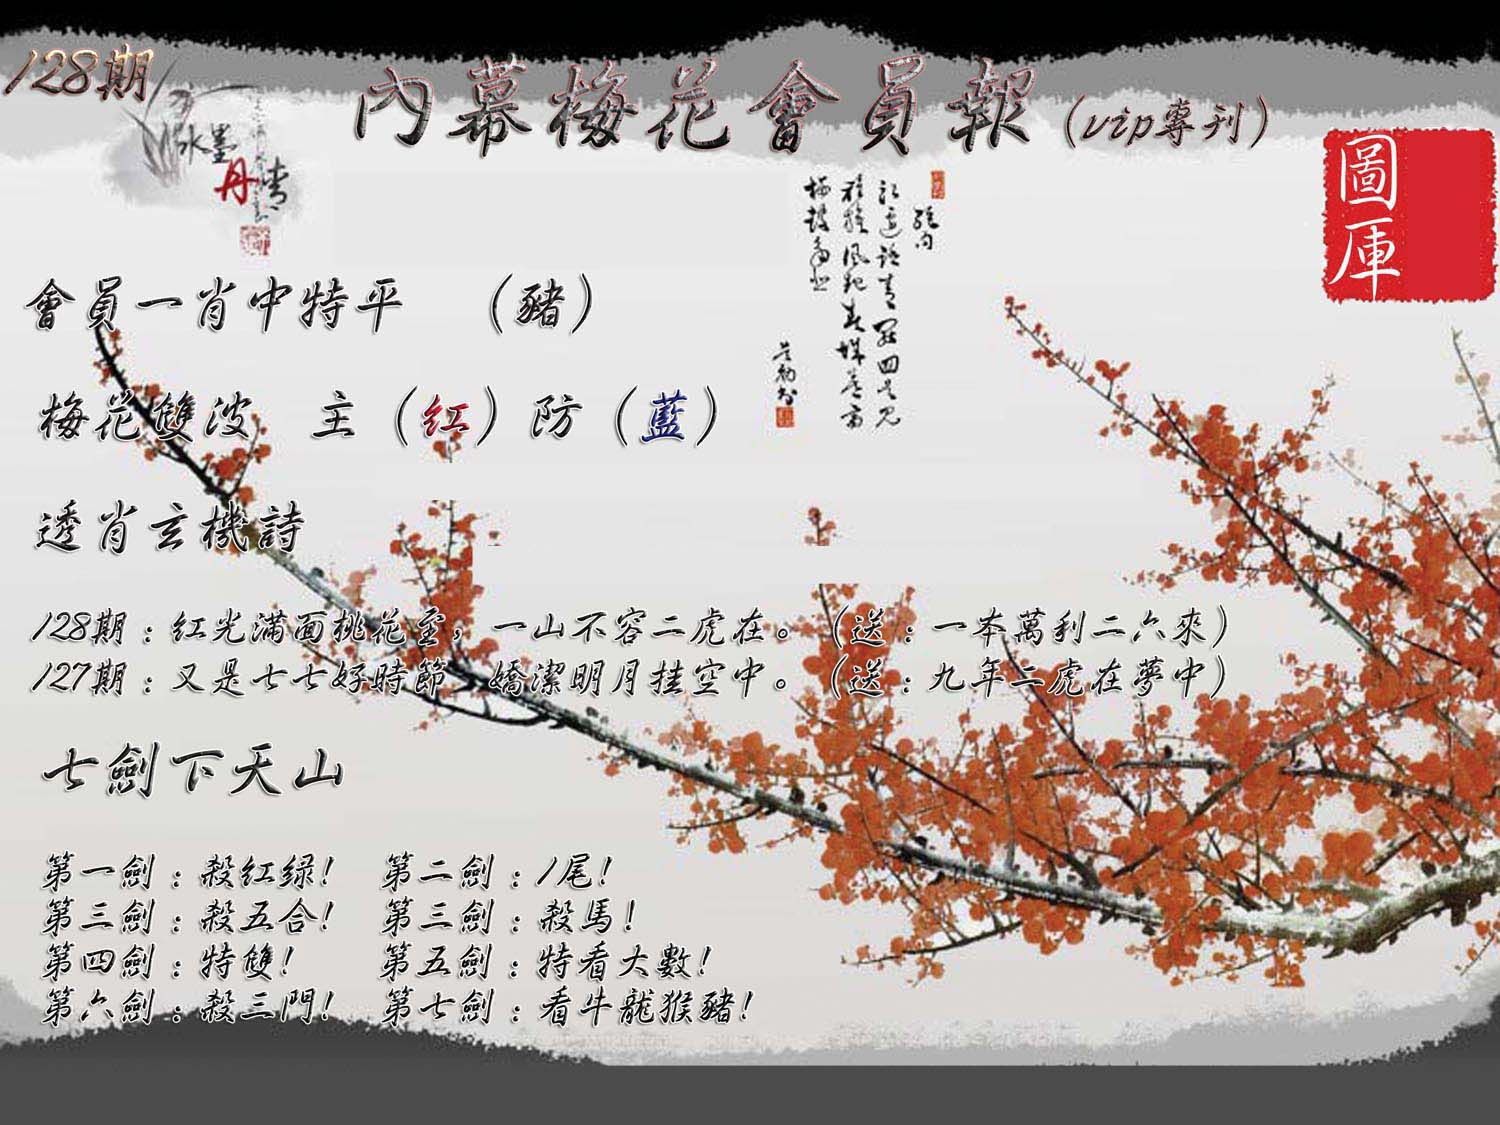 128期
內幕梅花會員報(vip專刊)
水墨
丹情
圖
庫
會員一肖中特平 (豬)
梅花雙波 主(紅)防(藍)
透肖玄機詩
128期:紅光滿面桃花至,一山不容二虎在。(送:一本萬利二六來)
127期:又是七七好時節 嬌潔明月挂空中。(送:九年二虎在夢中)
七劍下天山
第一劍:殺紅绿! 第二劍:1尾!
第三劍:殺五合! 第三劍:殺馬!
第四劍:特雙! 第五劍:特看大數!
第六劍:殺三門! 第七劍:看牛龍猴豬!